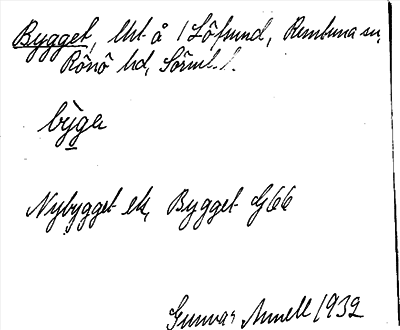 Bygget, lht å 1 Löfsund, Rumbuna sn,
Rönö hd, Sörml. l.
bỳga
Nybygget ek, Bygget G66
Gunnar Annell 1932